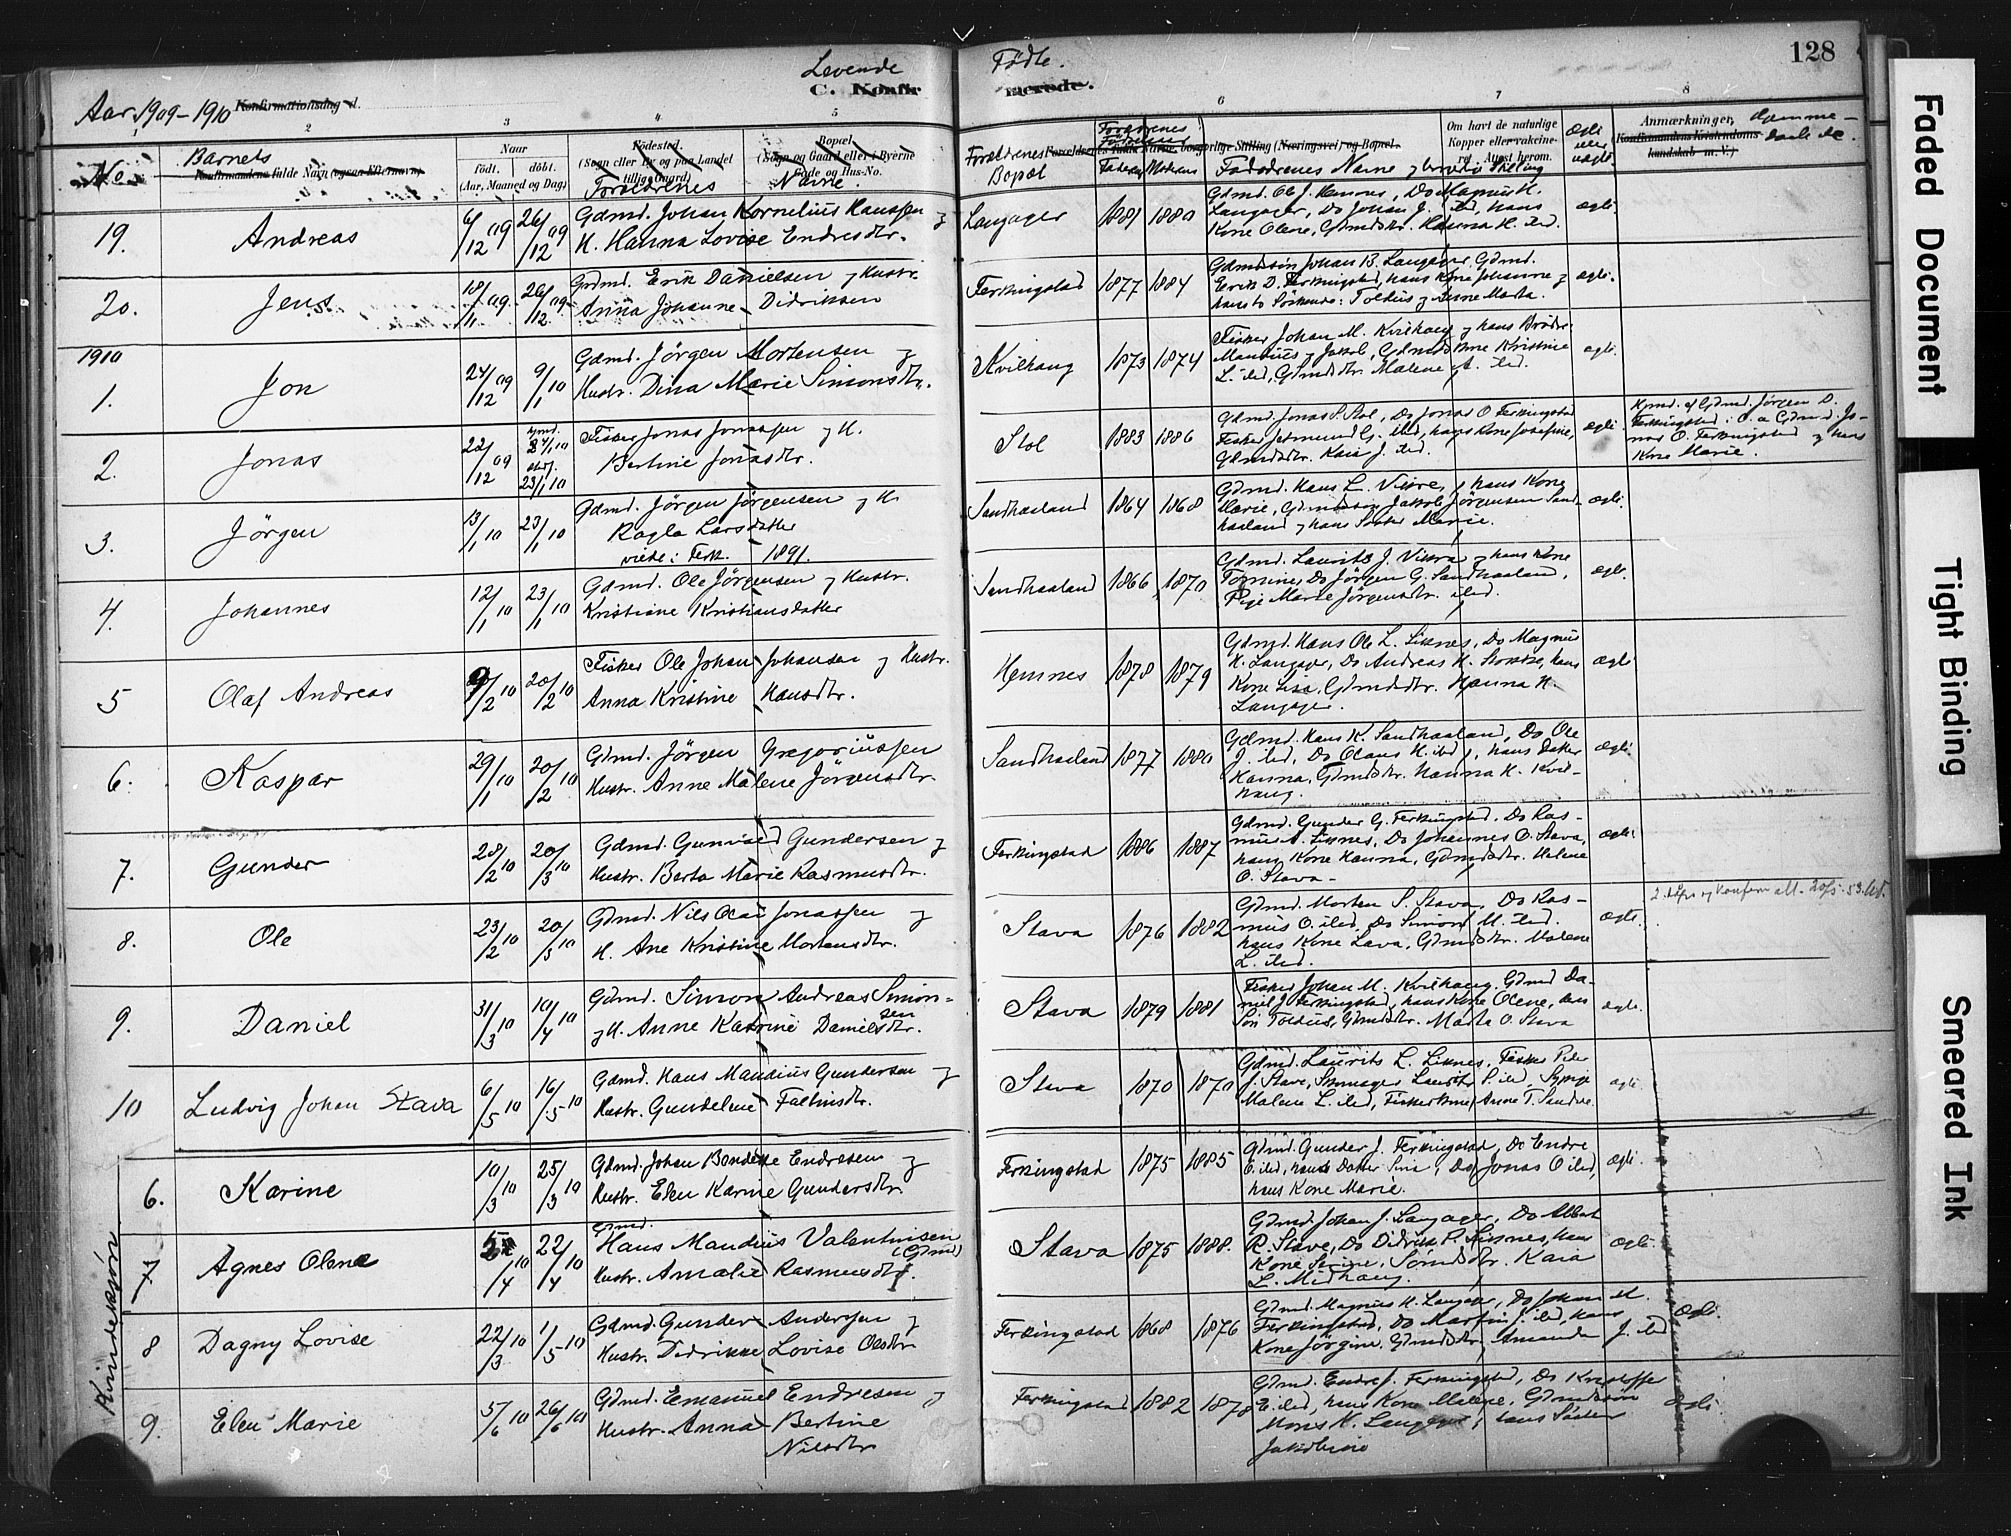 128
Levende Fødte.
C. Konfirmerede.
Aar 1909-1910 Konfirmationsdag d.
2 3 4 5 6 7 8
No. Barnets
Konfirmandens fulde Navn (ogsaa Efternavn).
Naar
født. døbt.
(Aar, Maaned og Dag)
Fødested.
(Sogn eller By og paa Landet
tillige Gaard)
Bopæl.
(Sogn og Gaard eller i Byerne
Gade og Hus-No.
Forældrenes Navne.
Forældrenes
Bopæl
Forældrenes
Faderens Moderens
Faddernes Navne
Om havt de naturlige
Kopper eller vaccine-
ret. Attest herom.
Ægte
eller
uægte
Anmærkninger, Hjemme-
Konfirmandens Kristendoms- døbt
kundskab m. V.)
19. Andreas 6/12 09 26/12 09 Gdmd. Johan Kornelius Hanssen og
H. Hanna Lovise Endresdtr.
Langager 1881 1880 Gdmd. Ole J. Hemnes, Do Magnus H.
Langager, Do Johan J. ibd, hans
Kone Olene, Gdmdsdtr. Hanna H. ibd.
ægte.
20. Jens 18/11 09 26/12 09 Gdmd. Erik Danielsen og Hustr.
Anna Johanne Didriksen
Ferkingstad 1877 1884 Gdmdssøn Johan B. Langager, Gdmd.
Erik D. Ferkingstad, hans Kone Johanne og
hans to Søskende: Tolkus og Anne Marta.
ægte.
1910
1. Jon 24/12 09 9/1 10 Gdmd. Jørgen Mortensen og
Hustr. Dina Marie Simonsdtr.
Kvilhaug 1873 1874 Fisker Johan M. Kvilhaug og hans Brødre
Mandius og Jakob, Gdmds Kone Kristine
L. ibd, Gdmdsdtr. Malene M. ibd.
ægte.
2. Jonas 22/12 09 23/1 10 Fisker Jonas Jonassen og H.
Bertine Jonasdtr.
Stol 1883 1886 Gdmd. Jonas S. Stol, Do Jonas O Ferkingstad
Fisker Jermund G. ibd, hans Kone Josefine,
Gdmdsdtr. Kaia J. ibd.
ægte
Hjmd. af Gdmd. Jørgen D.
Ferkingstad i O. a Gdmd. Jo-
nas O. Ferkingstad og hans
Kone Marie.
3. Jørgen 13/1 10 23/1 10 Gdmd. Jørgen Jørgensen og H.
Ragla Larsdatter
viede i Ferk. 1891.
Sandhaaland 1864 1868 Gdmd. Hans L. Vikre, hans Kone
Marie, Gdmdssøn Jakob Jørgensen Sand-
haaland og hans Søster Marie.
ægte.
4. Johannes 12/1 10 23/1 10 Gdmd. Ole Jørgensen og Hustr.
Kristiane Kristiansdatter
Sandhaaland 1866 1870 Gdmd. Laurits J. Vikra og hans Kone
Tornine, Do Jørgen G. Sandhaaland,
Pige Marie Jørgensdtr. ibd.
ægte.
5 Olaf Andreas 9/2 10 20/2 10 Fisker Ole Johan Johansen og Hustr.
Anna Kristine Hansdtr.
Hemnes 1878 1879 Gdmd. Hans Ole L. Liknes, Do Magnus
H. Langager, Do Andreas H. Stonse, hans
Kone Lisa, Gdmdsdtr. Hanna H.
Langager.
Ægte
6. Kaspar 29/1 10 20/2 10 Gdmd. Jørgen Gregoriussen
Hustr. Anne Malene Jørgensdtr.
Sandhaaland 1877 1880 Gdmd. Hans K. Sandhaaland, Do Ole
J. ibd, Do Olaus H. ibd, hans Datter
Hanna, Gdmdsdtr. Hanna K. Kvil-
haug.
Ægte
7. Gunder 28/2 10 20/3 10 Gdmd. Gunvald Gundersen og
Hustr. Berta Marie Rasmusdtr.
Ferkingstad 1886 1887 Gdmd. Gunder G. Ferkingstad, Do Ras-
mus A. Liknes, Do Johannes O. Stava,
hans Kone Hanna, Gdmdsdtr. Malene
O. Stava.
ægte.
8. Ole 23/2 10 20/3 10 Gdmd. Nils Olai Jonassen og
H. Ane Kristine Mortensdtr.
Stava 1876 1882 Gdmd. Morten S. Stava, Do Ras-
mus O. ibd, Do Simon M. ibd.
hans Kone Lava, Gdmdsdtr. Malene
L. ibd.
ægte.
9. Daniel 31/3 10 10/4 10 Gdmd. Simon Andreas Simon-
sen
og H. Anne Katrine Danielsdtr.
Stava 1879 1881 Fisker Johan M. Kvilhaug, Gdmd Da-
niel J. Ferkingstad, hans Kone Olene, hans
Søn Toldus, Gdmdsdtr. Marta O. Stava
ægte.
10 Ludvig Johan Stava 6/5 10 16/5 10 Gdmd. Hans Mandius Gundersen og
Hustr. Gundeline Faltinsdtr.
Stava 1870 1870 Gdmd. Laurits L. Liknes, Fisker Peder
J. Stava, Skomager Laurits P. ibd, Pige
Malene L. ibd, Fisker Kone Anne T. Sandve.
ægte.
Kvindekjøn
6. Karine 10/3 10 25/3 10 Gdmd. Johan Bendikke Endresen og
Hustr. Elen Karine Gundersdtr.
Ferkingstad 1875 1885 Gdmd. Gunder J. Ferkingstad, Do Endre
E. ibd, hans Datter Sina, Do Jonas O ibd,
hans Kone Marie.
Ægte.
7 Agnes Olene 5/4 10 22/4 10 Gdmd.
Hans Mandius Valentinsen
(Gdmd)
Hustr. Amalie Rasmusdtr.
Stava 1875 1888. Gdmd. Johan J. Langager, Do Albert
R. Stava, Do Didrik P. Liknes, hans
Kone Serine, Sømdsdtr. Kaia
L. Midhaug.
Ægte.
8 Dagny Lovise 22/3 10 1/5 10 Gdmd. Gunder Andersen og
Hustr. Didrikke Lovise Olsdtr
Ferkingstad 1868 1876 Gdmd. Magnus H. Langager, Do Johan M.
Ferkingstad, Do Martin J. ibd, hans
Kone Jørgine, Gdmdsdtr. Amanda J. ibd
Ægte.
9. Elen Marie 5/6 10 26/6 10 Gdmd. Emanuel Endresen og
Hustr. Anna Bertine
Nilsdtr
Ferkingstad 1882 1878 Gdmd. Endre J. Ferkingstad, Do Kristoffer
E. ibd, hans Kone Malene, Gdmdssøn
Mons K. Langager, hans Søster
Jakobine
Ægte
Faded Document
Tight Binding
Smeared Ink